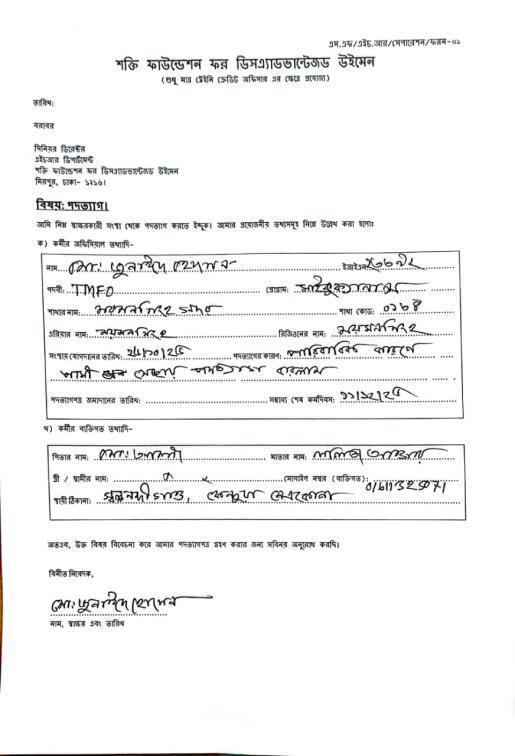 এস.এফ/এইচ.আর/সেপারেশন/ফরম-০৯
শক্তি ফাউন্ডেশন ফর ডিসএ্যাডভান্টেজড উইমেন
(শুধু মাত্র ট্রেইনি ক্রেডিট অফিসার এর ক্ষেত্রে প্রযোজ্য)
তারিখ:
বরাবর
সিনিয়র ডিরেক্টর
এইচআর ডিপার্টমেন্ট
শক্তি ফাউন্ডেশন ফর ডিসএ্যাডভান্টেজড উইমেন
মিরপুর, ঢাকা- ১২১৬।
বিষয়: পদত্যাগ।
আমি নিম্ন স্বাক্ষরকারী সংস্থা থেকে পদত্যাগ করতে ইচ্ছুক। আমার প্রয়োজনীয় তথ্যসমূহ নিম্নে উল্লেখ করা হলোঃ
ক) কর্মীর অফিসিয়াল তথ্যাদি-
নাম: মো: জুনাইদ হোসেন ইআইএন:
পদবী: TMFO প্রোগ্রাম:
শাখার নাম: ময়মনসিংহ সদর শাখা কোড: ০১৬৪
এরিয়ার নাম: ময়মনসিংহ রিজিওনের নাম: ময়মনসিংহ
সংস্থায় যোগদানের তারিখ: পদত্যাগের কারণ: পারিবারিক কারণে
আমী পদত্যাগ করলাম
পদত্যাগপত্র জমাদানের তারিখ: সম্ভাব্য শেষ কর্মদিবস: ১১/১২/২৫
খ) কর্মীর ব্যক্তিগত তথ্যাদি-
পিতার নাম: মো: মাতার নাম:
স্ত্রী / স্বামীর নাম: মোবাইল নম্বর (ব্যক্তিগত):
স্থায়ী ঠিকানা: কেন্দুয়া নেত্রকোনা
অতএব, উক্ত বিষয় বিবেচনা করে আমার পদত্যাগপত্র গ্রহণ করার জন্য সবিনয় অনুরোধ করছি।
বিনীত নিবেদক,
মো: জুনাইদ হোসেন
নাম, স্বাক্ষর এবং তারিখ